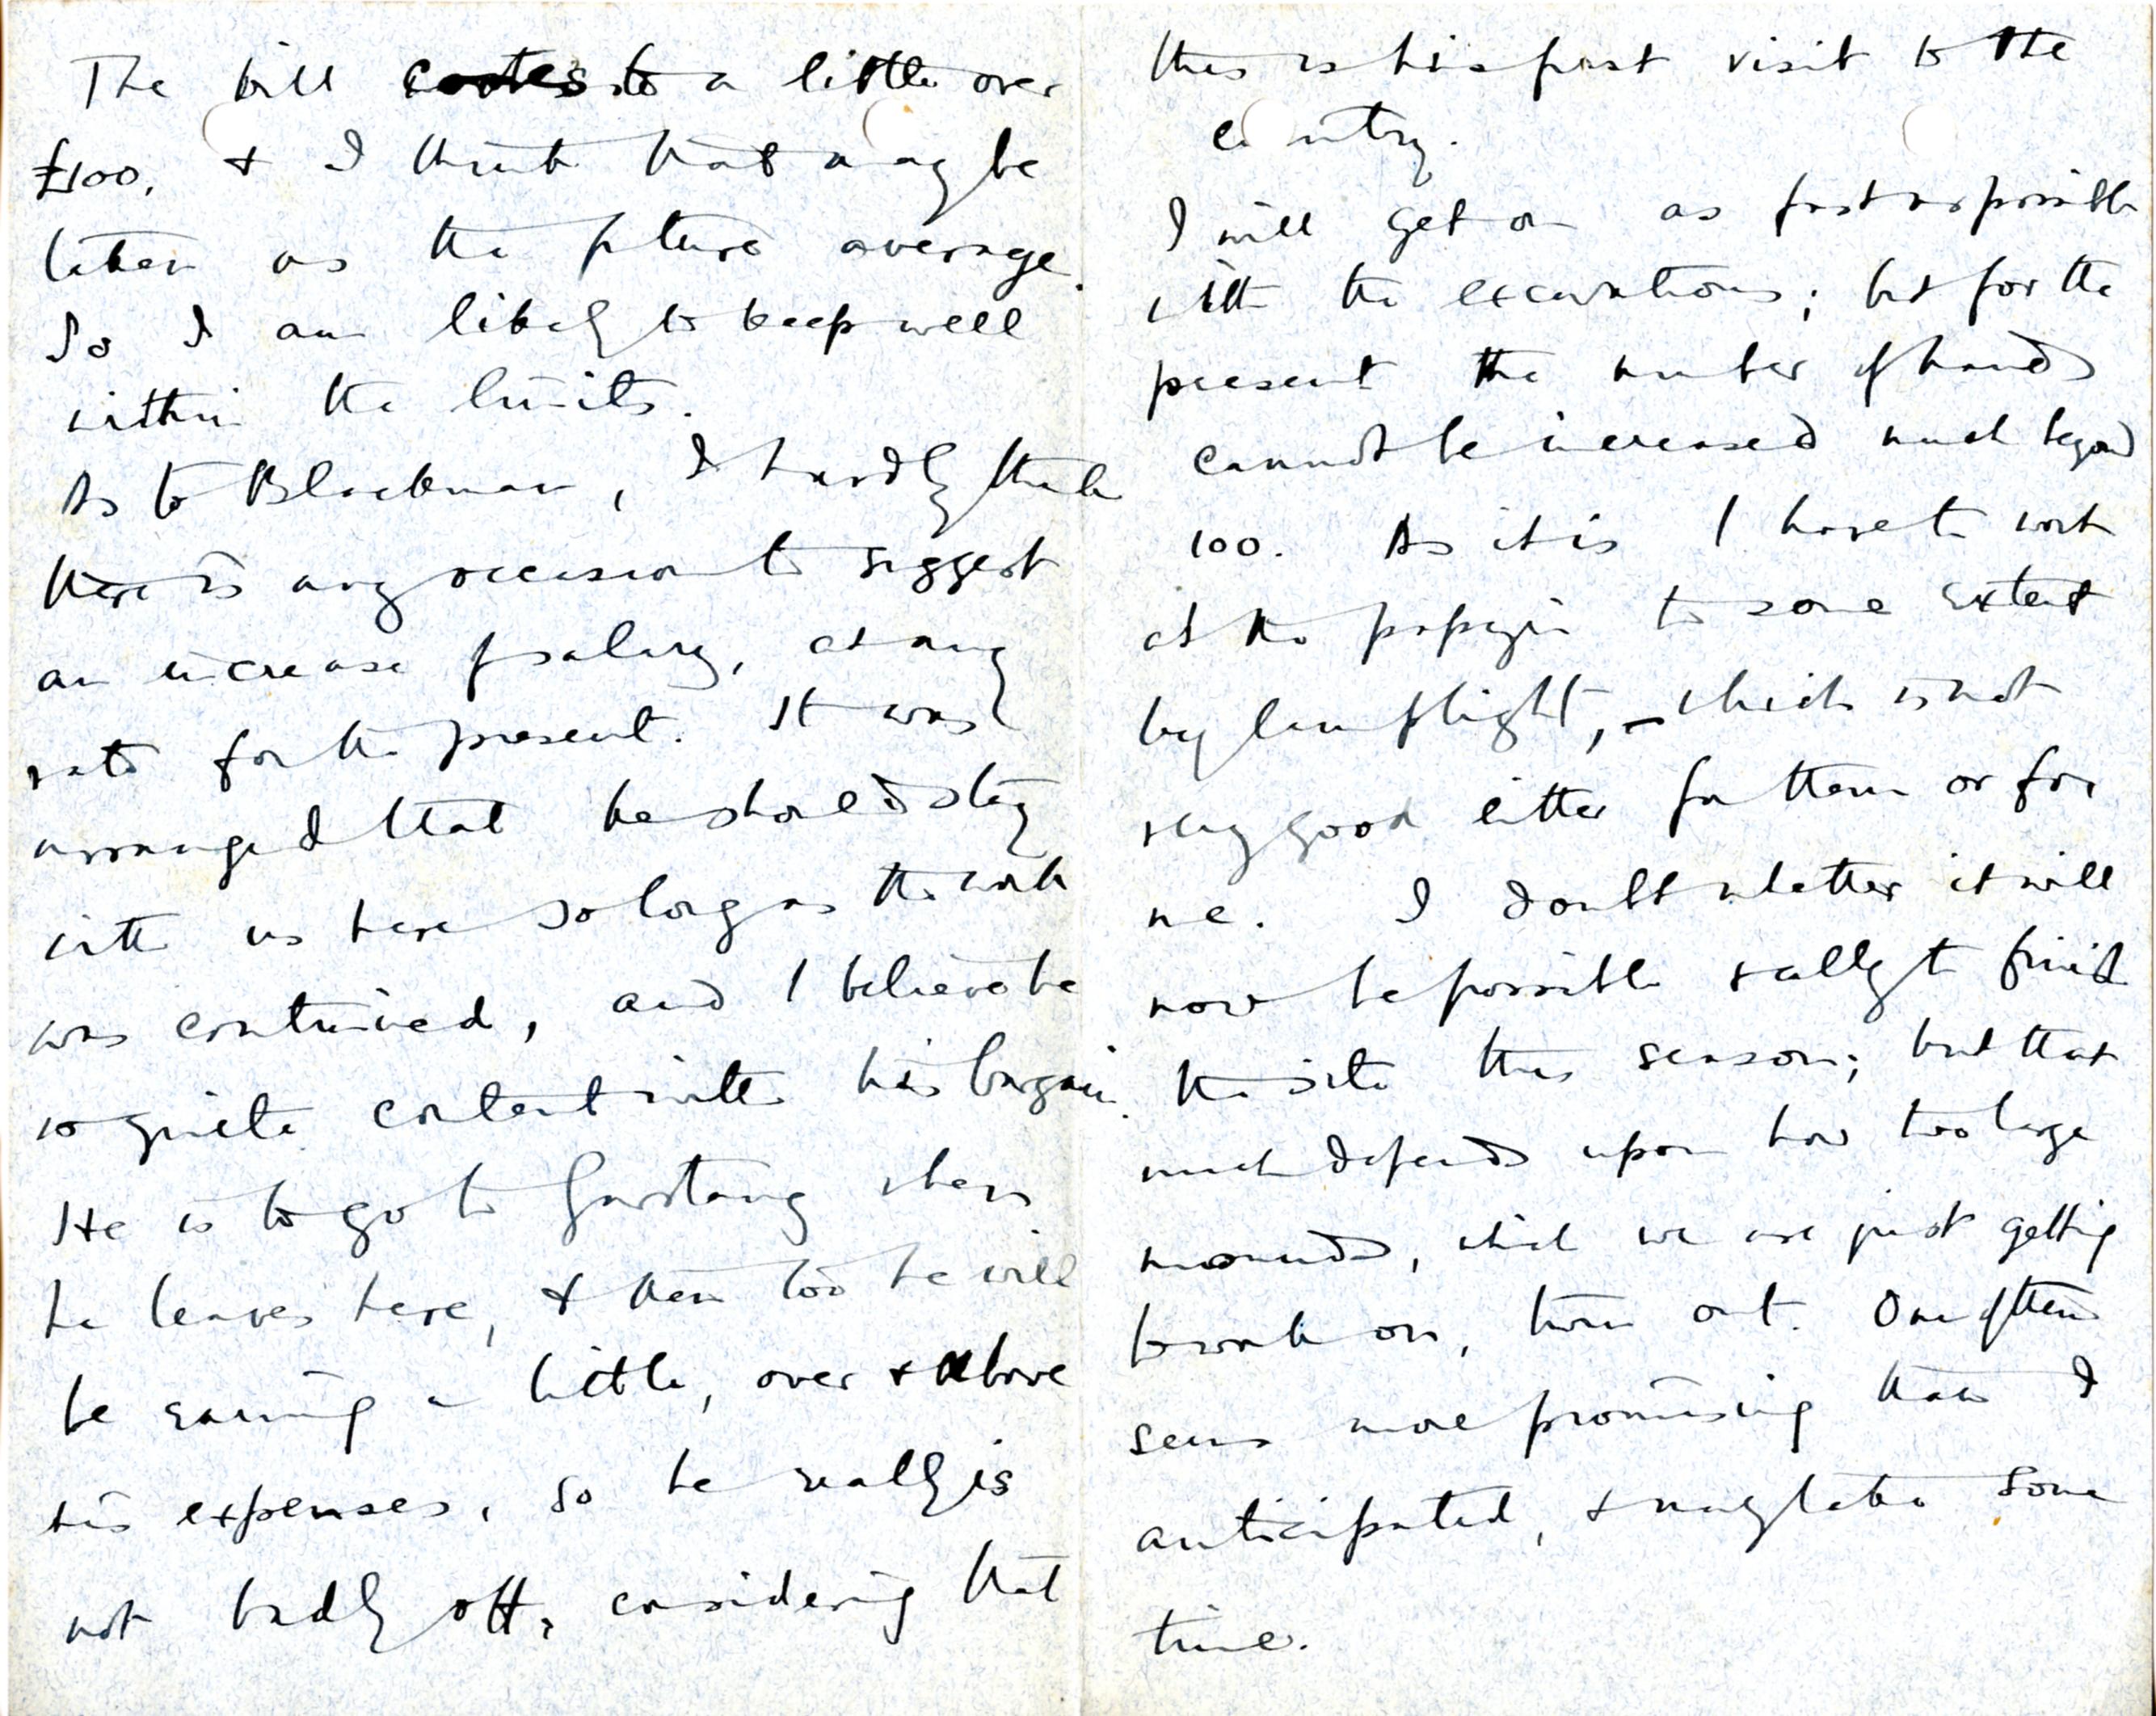 The bill comes to a little over
£100, & I think that may be
taken as the future average.
So I am likely to keep well
within the limits.
As to Blackman, I hardly think
there is any occasion to suggest
an increase of salary, at any
rate for the present. It was
arranged that he should stay
with us here so long as the work
was continued, and I believe he
is quite content with his bargain.
He is to go to Garstang when
he leaves here, & then too he will
be earning a little, over & above
his expenses, so he really is
not badly off, considering that
this is his first visit to the
country.
I will get on as fast as possible
with the excavations; but for the
present the number of hands
cannot be increased much beyond
100. As it is I have to work
at the papyri to some extent
by lamplight, – which is not
very good either for them or for
me. I doubt whether it will
now be possible really to finish
the site this season; but that
much depends upon how two large
mounds, which we are just getting
to work on, turn out. One of them
seems more promising than I
anticipated, & may take some
time.